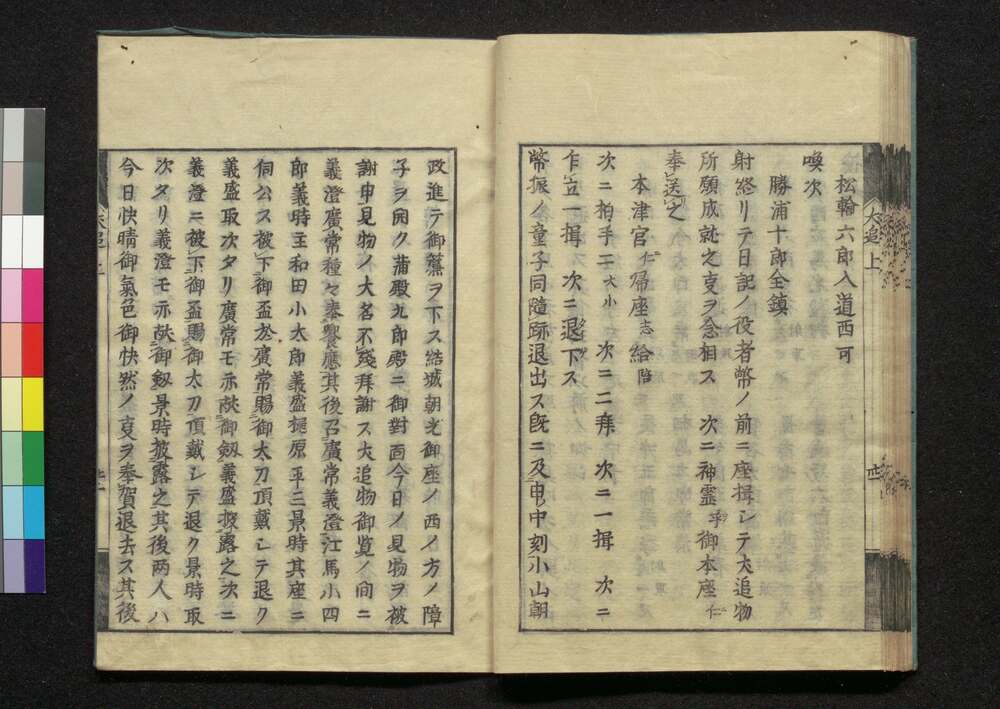 松輪六郎入道西可
喚次
勝浦十郎全鎮
射終リテ日記ノ役者幣ノ前ニ座揖シテ犬追物
所願成就之㕝ヲ念相ス 次ニ神霊乎御本座仁
奉送之
本津宮仁帰座志給陪
次ニ柏手二大小 次ニ二拜 次ニ一揖 次ニ
乍立一揖 次ニ退下ス
幣振ノ童子同隨跡退出ス既ニ及申中刻小山朝
犬追上
政進テ御簾ヲ下ス結城朝光御座ノ西ノ方ノ障
子ヲ開ク蒲殿九郎殿ニ御對面今日ノ見物ヲ被
謝申見物ノ大名不残拜謝ス犬追物御覧ノ間ニ
義澄廣常種々奉饗應其後召廣常義澄江馬小四
郎義時王和田小太郎義盛梶原平三景時其座ニ
伺公ス被下御盃於廣常賜御太刀頂戴シテ退ク
義盛取次タリ廣常モ亦献御劔義盛披露之次ニ
義澄ニ被下御盃賜御太刀頂戴シテ退ク景時取
次タリ義澄モ亦献御劔景時披露之其後两人ハ
今日快晴御氣色御快然ノ㕝ヲ奉賀退去ス其後